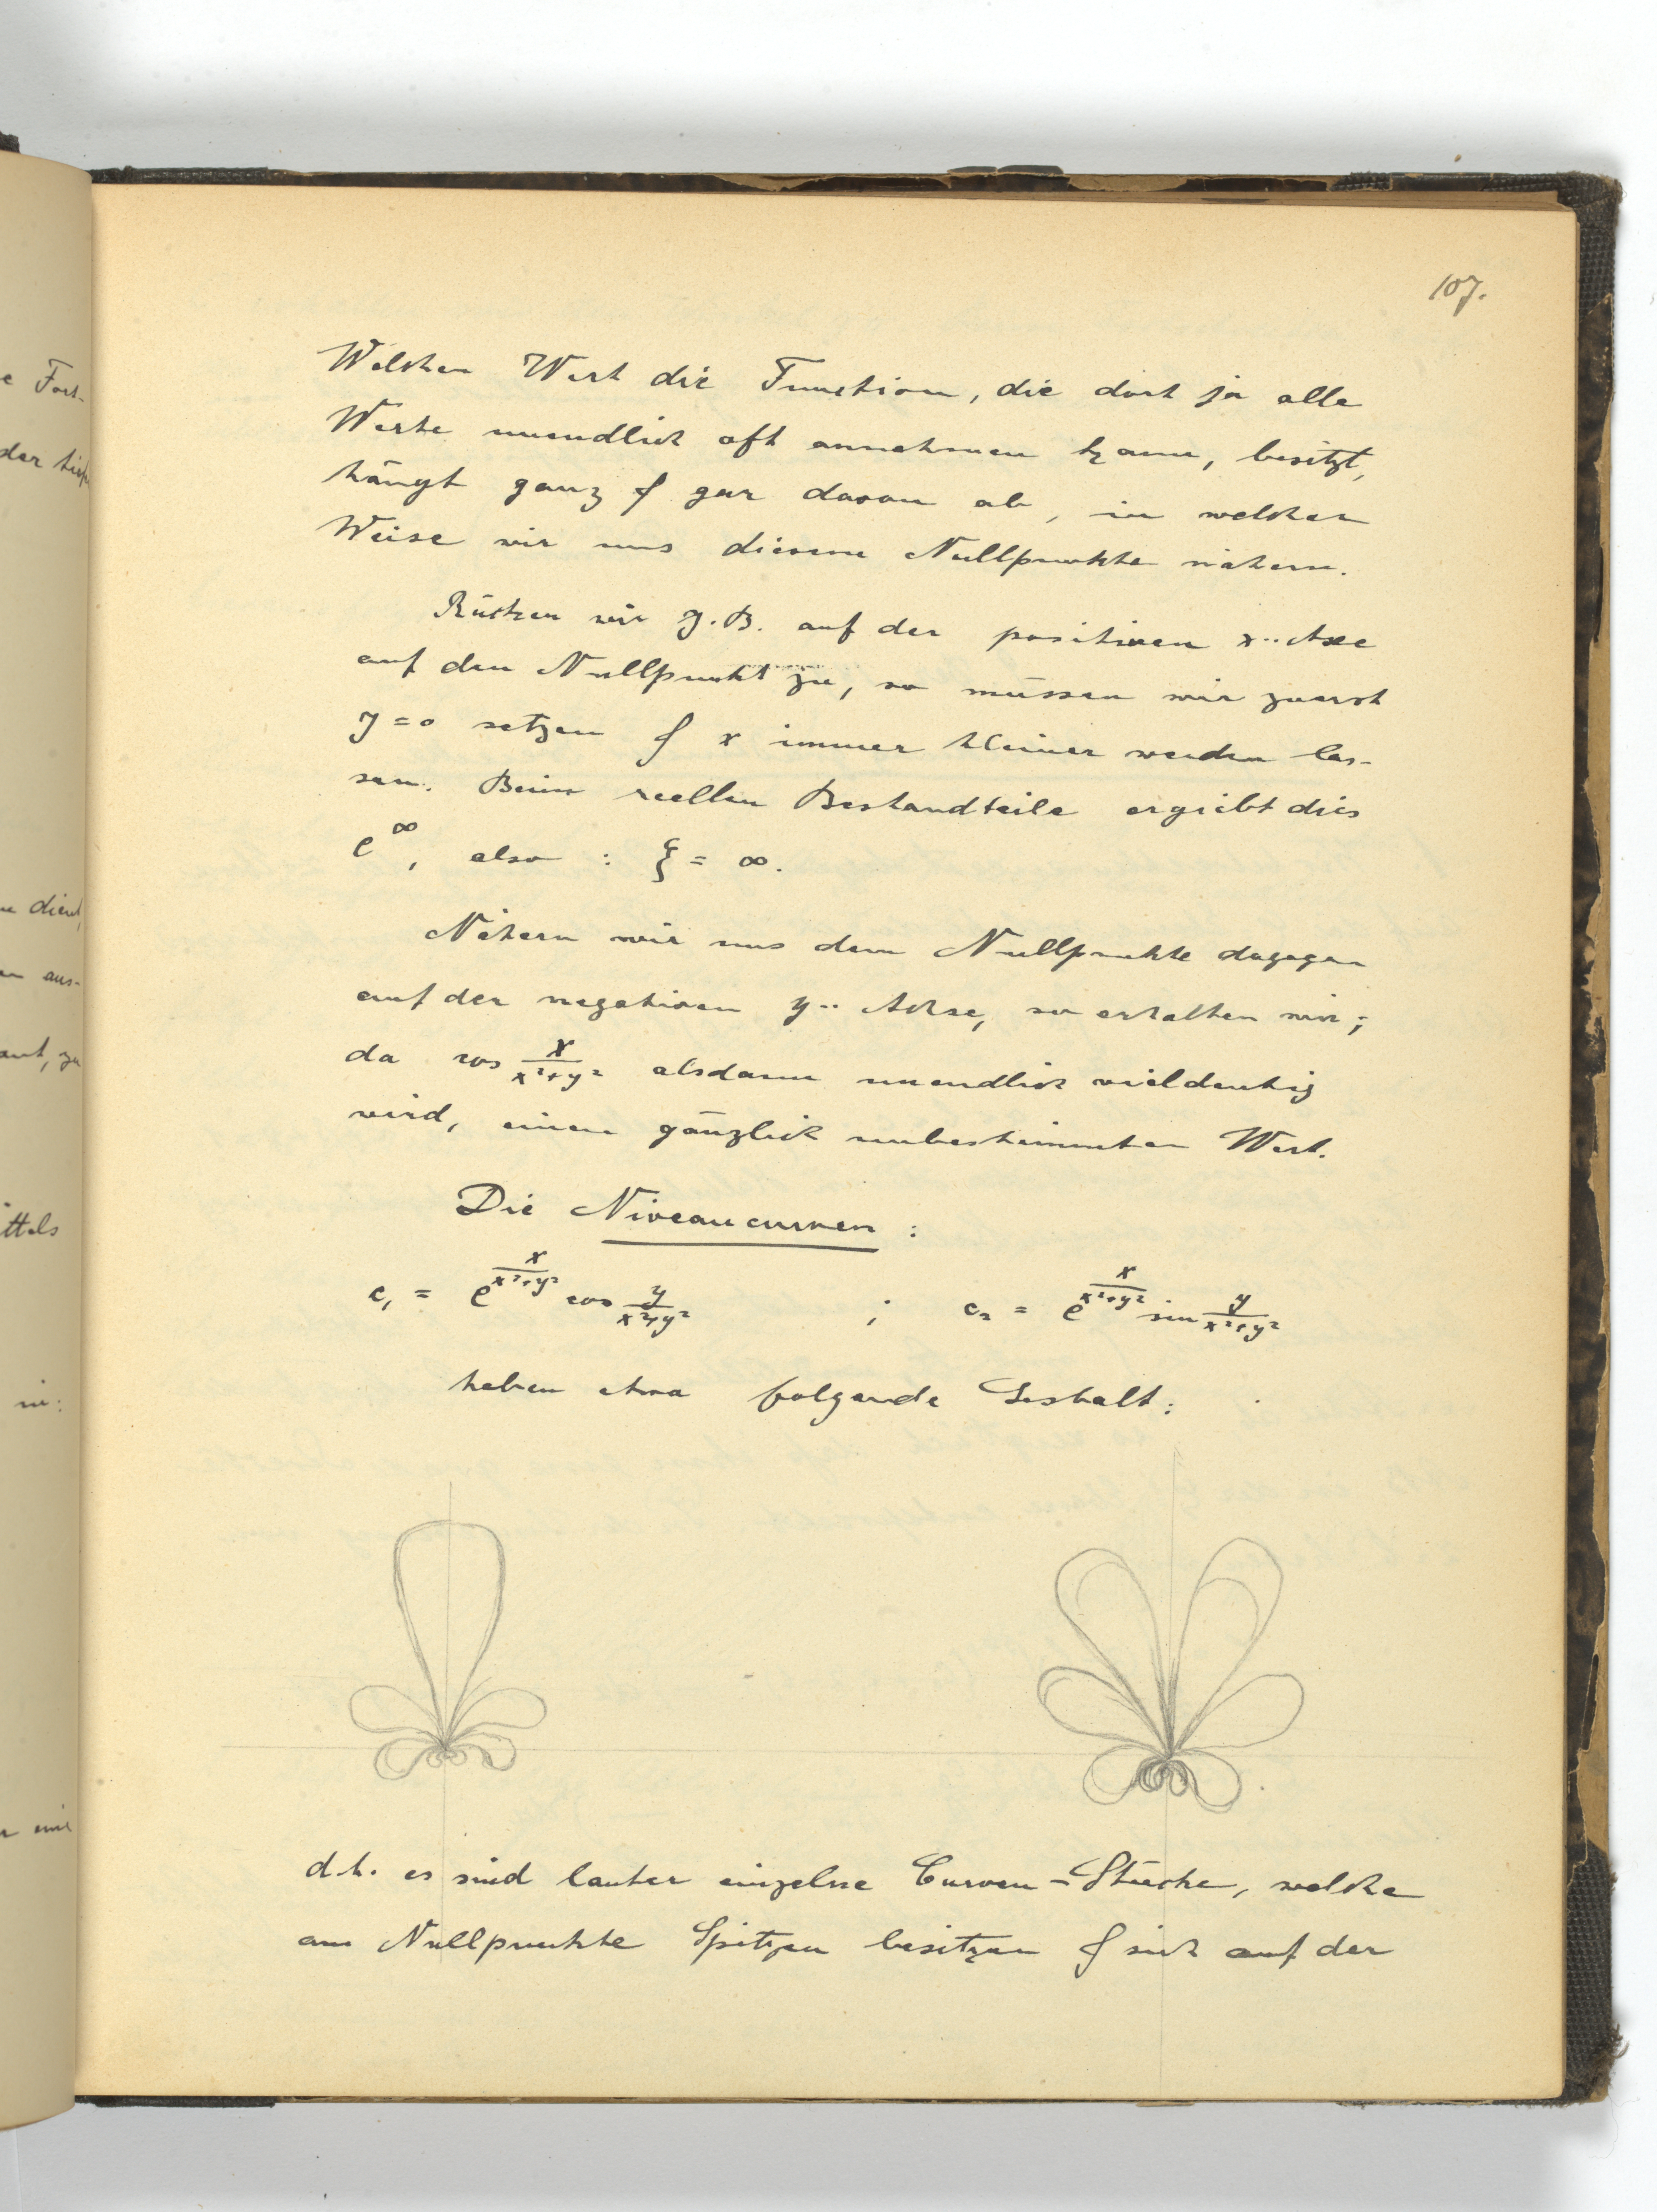 107.
Welchen Wert die Function, die dort ja alle
Werte unendlich oft annehmen kann, besitzt,
hängt ganz & gar davon ab, in welcher
Weise wir uns diesem Nullpunkte nähern.
Rücken wir z.B. auf der positiven x-Axe
auf den Nullpunkt zu, so müssen wir zuerst
y=0 setzen & x immer kleiner werden las-
sen. Beim reellen Bestandteile ergiebt dies
e^∞, also : ξ = ∞.
Nähern wir uns dem Nullpunkte dagegen
auf der negativen y-Achse, so erhalten wir;
da cos x/(x²+y²) alsdann unendlich vieldeutig
wird, einen gänzlich unbestimmten Wert.
Die Niveaucurven :
c₁ = e^(x/(x²+y²)) cos y/(x²+y²) ; c₂ = e^(x/(x²+y²)) sin y/(x²+y²)
haben etwa folgende Gestalt:
d.h. es sind lauter einzelne Curven-Stücke, welche
am Nullpunkte Spitzen besitzen & sich auf der
e Fort-
der
aus-
ittels